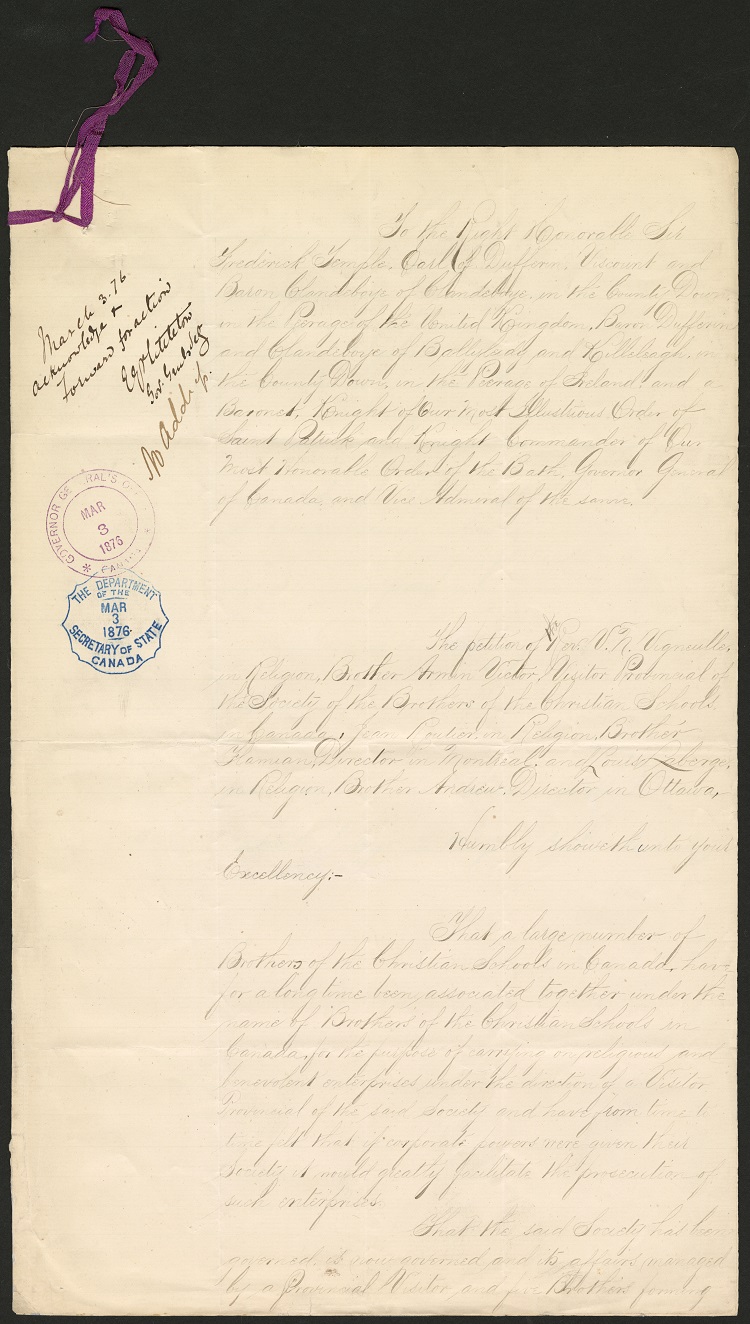 March 3. 76
acknowledge &
forward for action
Govr Genls Secy
No Address.
GOVERNOR GENERAL'S OFFICE
MAR
3
1876
CANADA
THE DEPARTMENT
OF THE
MAR
3
1876
SECRETARY OF STATE
CANADA
To the Right Honorable Sir
Frederick Temple, Earl of Dufferin, Viscount and
Baron Clandeboye of Clandeboye, in the County Down,
in the Peerage of the United Kingdom, Baron Dufferin
and Clandeboye of Ballyleidy and Killeleagh, in
the County Down, in the Peerage of Ireland and a
Baronet, Knight of Our Most Illustrious Order of
Saint Patrick and Knight Commander of Our
Most Honorable Order of the Bath, Governor General
of Canada, and Vice Admiral of the same.
The petition of the Rev. V. R.
in Religion, Brother Armin Victor, Visitor Provincial of
the Society of the Brothers of the Christian Schools
in Canada, Jean in Religion, Brother
Director in Montreal, and Louis Laberge,
in Religion, Brother Andrew, Director in Ottawa,
Humbly sheweth unto your
Excellency:-
That a large number of
Brothers of the Christian Schools in Canada, have
for a long time been associated together under the
name of Brothers of the Christian Schools in
Canada, for the purpose of carrying on religious and
benevolent enterprises under the direction of a Visitor
Provincial of the said Society and have from time to
time felt that if corporate powers were given their
Society it would greatly facilitate the prosecution of
such enterprises.
That the said Society has been
governed, is now governed and its affairs managed
by a Provincial Visitor, and five Brothers forming